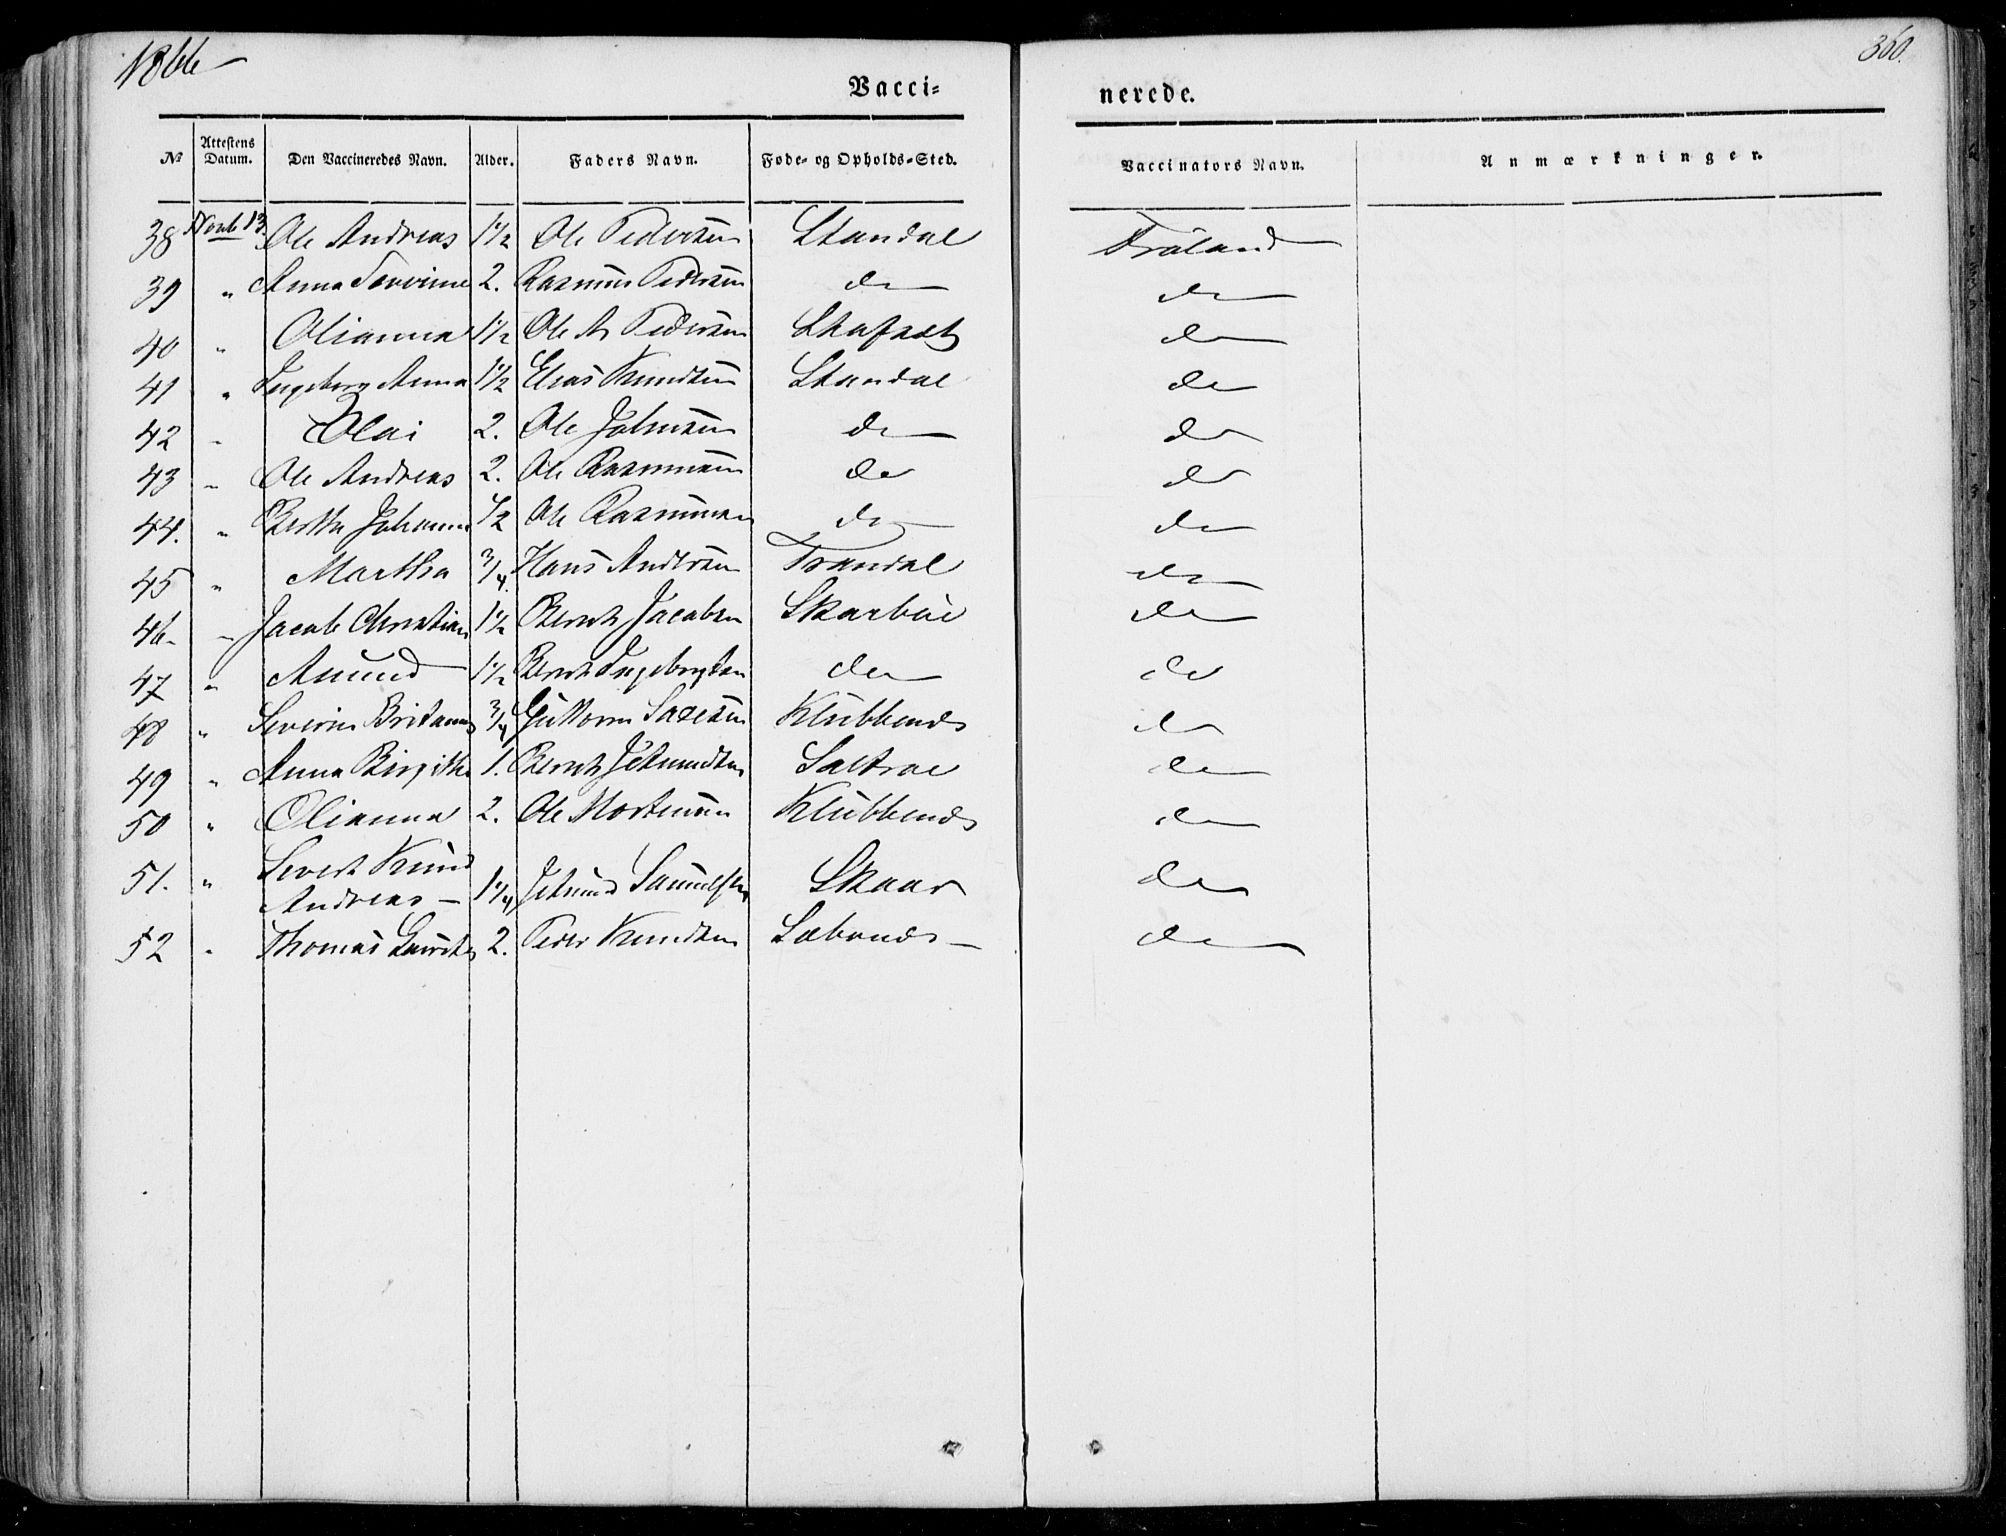 1866
360.
Vacci= nerede.
No Attestens Datum. Den Vaccineredes Navn. Alder. Faders Navn. Føde- og Opholds-Sted. Vaccinators Navn. Anmærkninger.
38 Novb 13 Ole Andreas 1 1/2 Ole Pedersen Standal Fröland
39 " Anna Severine 2. Rasmus Pedersen do do
40 " Olianna 1 1/2 Ole A Pedersen do
41 " Ingeborg Anna 1 1/2 Elias Knudsen Standal do
42 " Olai 2. Ole Johnsen do do
43 " Ole Andreas 2. Ole Rasmusen do do
44. " Berthe Johanne 1/2 Ole Rasmusen do do
45 " Martha 3/4. Hans Andersen Trandal do
46 " Jacob Christian 1 1/2 Bernt Jacobsen Skarböe do
47 " Amund 1 1/2 Bernt Ingebrigtsen do do
48 " Severin 3/4 Guttorm Saxesen Klubbens do
49 " Anna Birgithe 1. Bernt Jetmundsen Sætrae do
50 " Olianna 2. Ole Mortensen Klubbens do
51. " Sivert Knud
Andreas - 1 1/4 Jetmund Samuelsen Skaar do
52 " Thomas 2. Peder Knudsen Sæbonds do